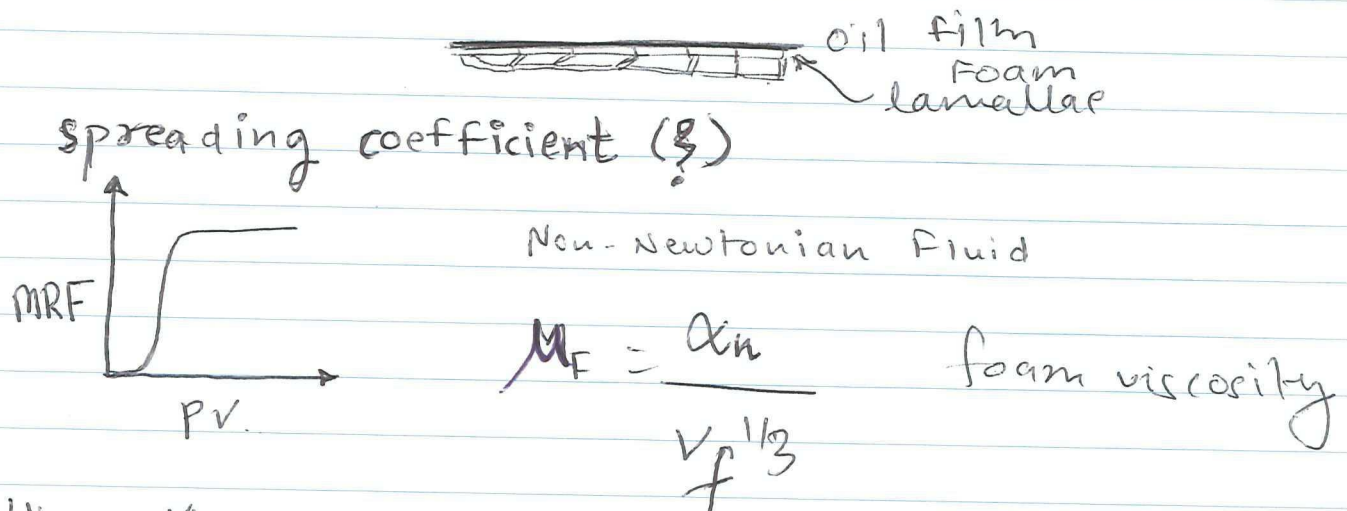 oil film
Foam
lamallae
spreading coefficient (ξ)
Non-Newtonian Fluid
MRF
μF = αn / Vf^1/3
foam viscosity
PV.